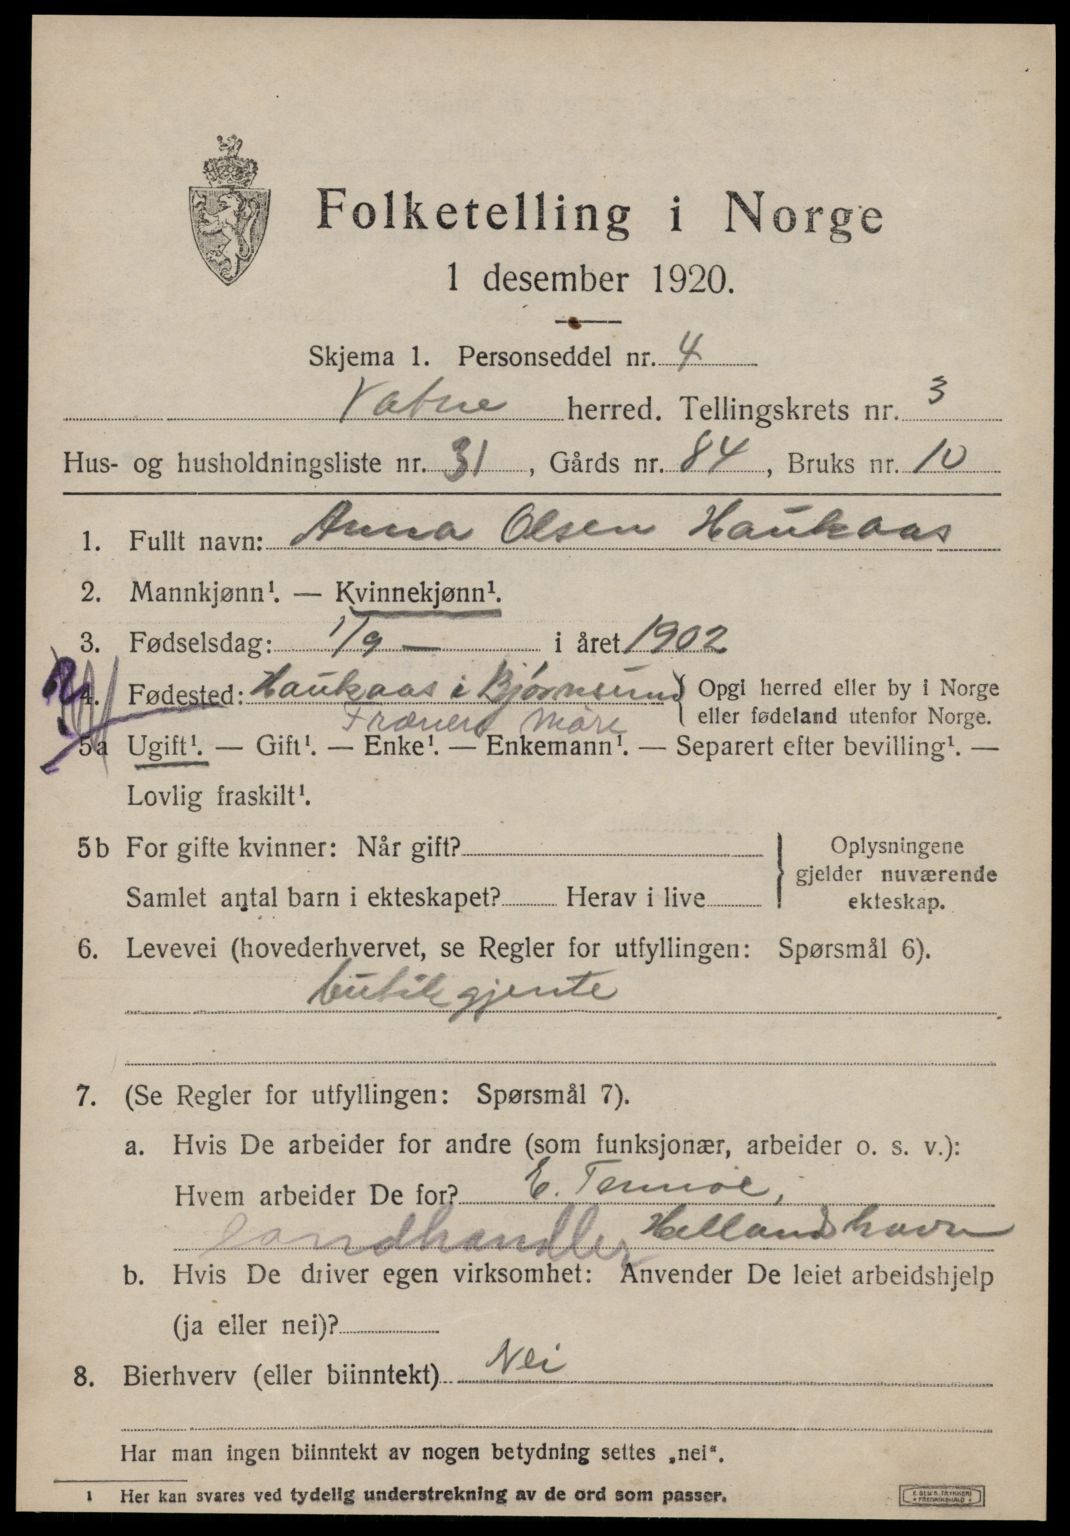 Folketelling i Norge
1 desember 1920.
Skjema 1. Personseddel nr. 4
Vatne herred. Tellingskrets nr. 3
Hus- og husholdningsliste nr. 31, Gårds nr. 84, Bruks nr. 10
1. Fullt navn: Anna Olsen Haukaas
2. Mannkjønn¹. — Kvinnekjønn¹.
3. Fødselsdag: 1/9 — i året 1902
4. Fødested: Haukaas i Bjørnsund } Opgi herred eller by i Norge
Fræner Møre eller fødeland utenfor Norge.
5a Ugift¹. — Gift¹. — Enke¹. — Enkemann¹. — Separert efter bevilling¹. —
Lovlig fraskilt¹.
5b For gifte kvinner: Når gift? Oplysningene
gjelder nuværende
Samlet antal barn i ekteskapet? Herav i live ekteskap.
6. Levevei (hovederhvervet, se Regler for utfyllingen: Spørsmål 6).
butikgjente
7. (Se Regler for utfyllingen: Spørsmål 7).
a. Hvis De arbeider for andre (som funksjonær, arbeider o. s. v.):
Hvem arbeider De for? E. Tennøe,
landhandler Hellandshavn
b. Hvis De driver egen virksomhet: Anvender De leiet arbeidshjelp
(ja eller nei)?
8. Bierhverv (eller biinntekt) Nei
Har man ingen biinntekt av nogen betydning settes „nei“.
1 Her kan svares ved tydelig understrekning av de ord som passer.